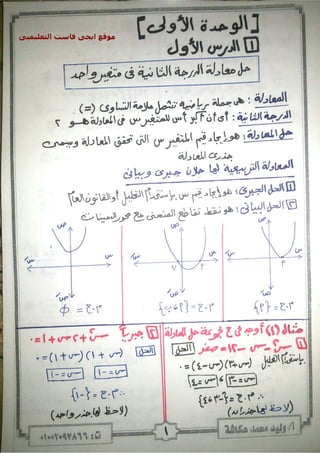 [الوحدة الأولى]
موقع ايجى فاست التعليمى
1 الدرس الأول
حل معادلة الدرجة الثانية فى متغير واحد
المعادلة : هى جملة رياضية تشمل علامة التساوى (=)
الدرجة الثانية : أى أن أكبر أس للمتغير س فى المعادلة هو ٢
حل المعادلة : هو إيجاد قيم المتغير س التى تحقق المعادلة ويسمى
جذرى المعادلة
المعادلة التربيعية لها حلان جبرى وبيانى
1 الحل الجبرى : هو إيجاد قيم س باستخدام التحليل أو القانون العام
٢ الحل البيانى : هو نقط تقاطع المنحنى مع محور السينات
م.ح = {٢}
م.ح = {٢، ب}
م.ح = Ø
مثال (١) أوجد فى ح مجموعة حل المعادلة
١ س² - س - ١٢ = صفر
الحل
باستخدام التحليل (س+٣)(س-٤) = ٠
س = -٣ ، س = ٤
∴ م.ح = {-٣، ٤}
(لاحظ لها جذران)
٢ جبرياً س² + ٢س + ١ = ٠
الحل (س+١)(س+١) = ٠
س = -١ س = -١
∴ م.ح = {-١}
(لاحظ لها جذر واحد)
أ/ وليد محمد عكاشة
١
ت: ٠١٠٠٢٠٩٧٨٦٦